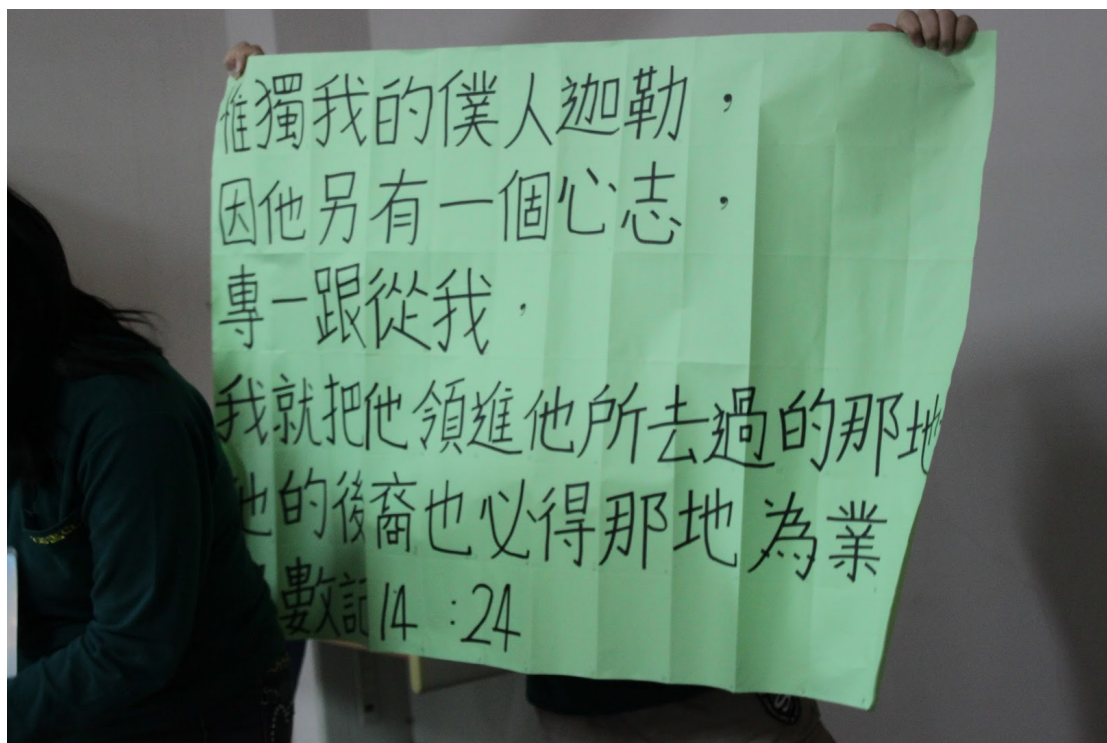 惟獨我的僕人迦勒，
因他另有一個心志，
專一跟從我，
我就把他領進他所去過的那地
他的後裔也必得那地為業
數記14:24